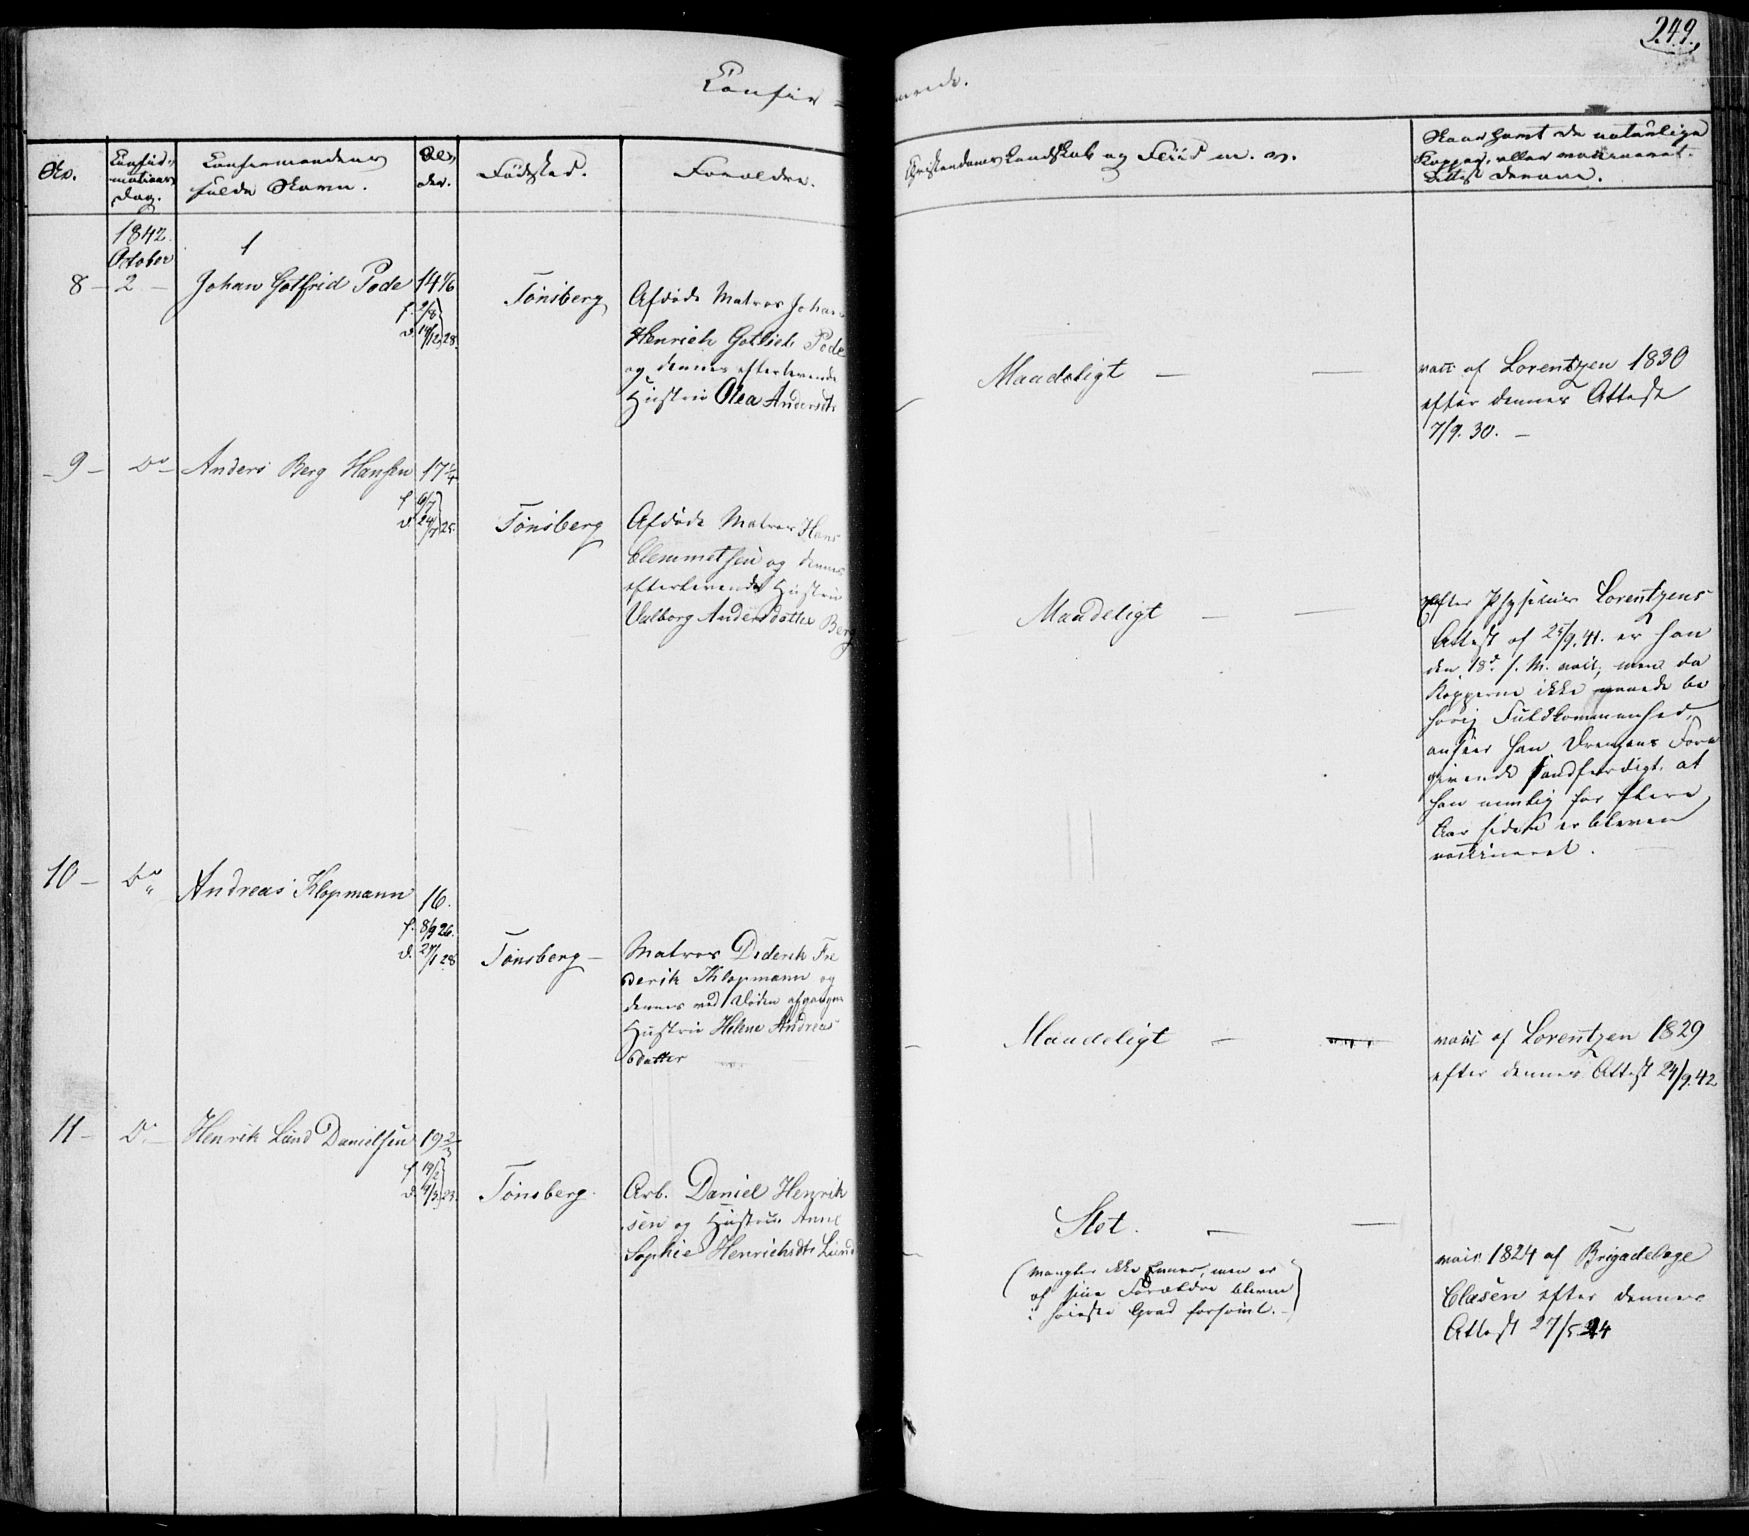 249.
Confir-
merede.
No.
Confir-
mations
Dag.
Confirmandens
fulde Navn.
Al-
der.
Fødested.
Forældre.
Christendoms Kundskab og Flid m. v.
Naar havt de naturlige
Kopper, eller vaccineret.
Attest derom.
1842.
October
1
8 - 2 - Johan Gotfrid Pode 14 1/6
f. 2/8
d. 14/12 28.
Tønsberg
Afdøde Matros Johan
Henrich Gotlieb Pode
og dennes efterlevende
Hustrue Olea Andersdtr
Maadeligt -
vacc. af Lorentzen 1830
efter dennes Attest
7/9. 30. -
- 9 - Do Anders Berg Hansen 17 1/4
f. 6/7
d. 24/7 25.
Tønsberg
Afdøde Matros Hans
Clemmetsen og dennes
efterlevende Hustrue
Valborg Andersdatter Berg
Maadeligt -
Efter Physicus Lorentzens
Attest af 25/9. 41. er han
den 18d. s. M. vacc., men da
Kopperne ikke naaede be
hørig Fuldkommenhed,
anseer han Drengens Fore
givende sandfærdigt, at
han nemlig for flere
Aar siden er bleven
vaccineret.
10 - Do Andreas Klopmann 16.
f. 8/9 26.
d. 27/1 28
Tønsberg -
Matros Diderik Fre
derik Klopmann og
dennes ved Døden afgangne
Hustrue Helene Andreas
datter
Maadeligt -
vacc af Lorentzen 1829
efter dennes Attest 24/9. 42
11 - Do - Henrik Lund Danielsen 19 2/3
f. 14/2
d. 4/3 23.
Tønsberg.
Arb. Daniel Henrik
sen og Hustrue Anne
Sophie Henrichsdtr Lund
Slet. -
(mangler ikke Evner, men er
af sine Forældre bleven
i høieste Grad forsømt. -)
vacc. 1824 af Brigadelæge
Clasen efter dennes
Attest 27/5 24